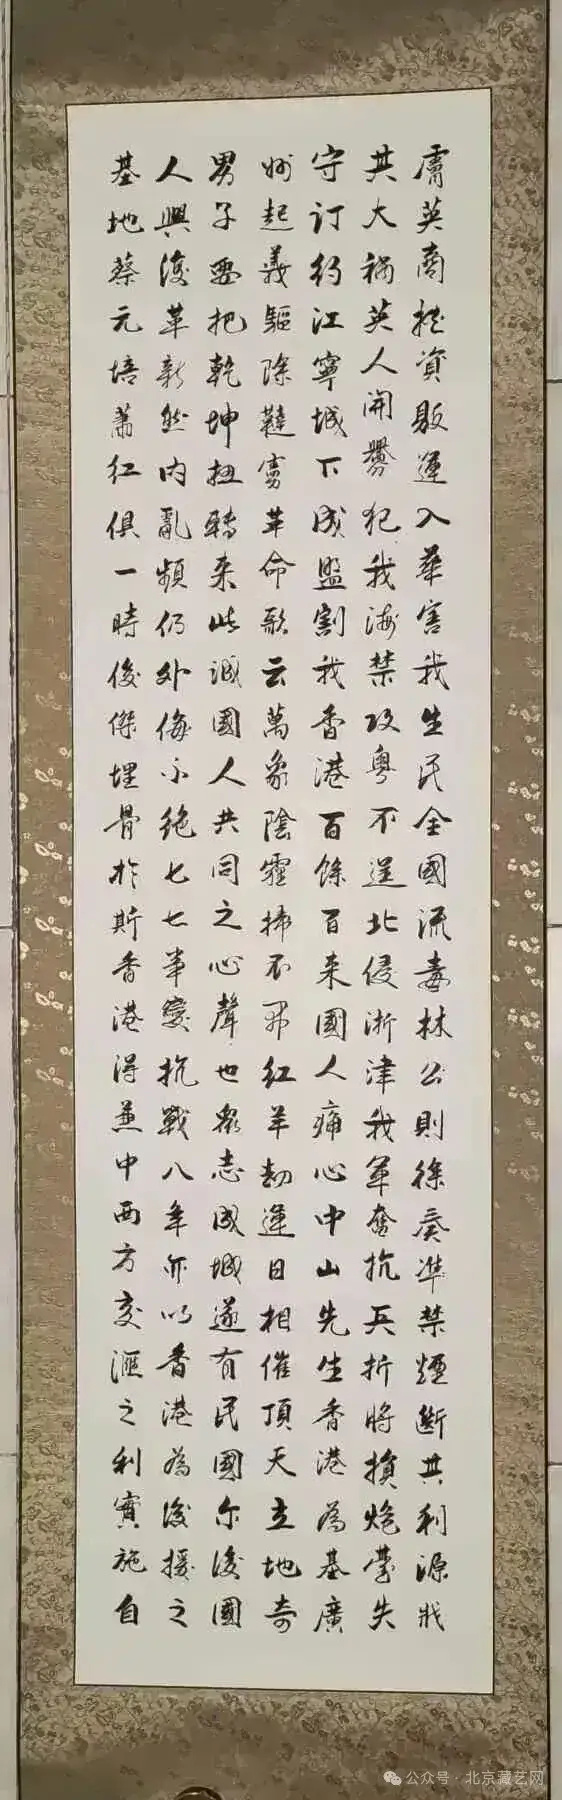 膚英商挖資販運入華害我生民全國流毒林公則徐奏準禁煙斷其利源戕
其大禍英人開釁犯我海禁攻粵不逞北侵浙津我軍奮抗兵折將損炮臺失
守訂約江寧城下成盟割我香港百餘百来國人痛心中山先生香港為基廣
州起義驅除韃虜革命歌云萬象陰霾掃不開紅羊劫運日相催頂天立地奇
男子要把乾坤扭轉来此誠國人共同之心聲也眾志成城遂有民國尔後國
人興後革新然内亂頻仍外侮不絶七七事變抗戰八年亦以香港為後援之
基地蔡元培蕭红俱一時俊傑埋骨於斯香港得兼中西方交滙之利實施自
公众号·北京藏艺网